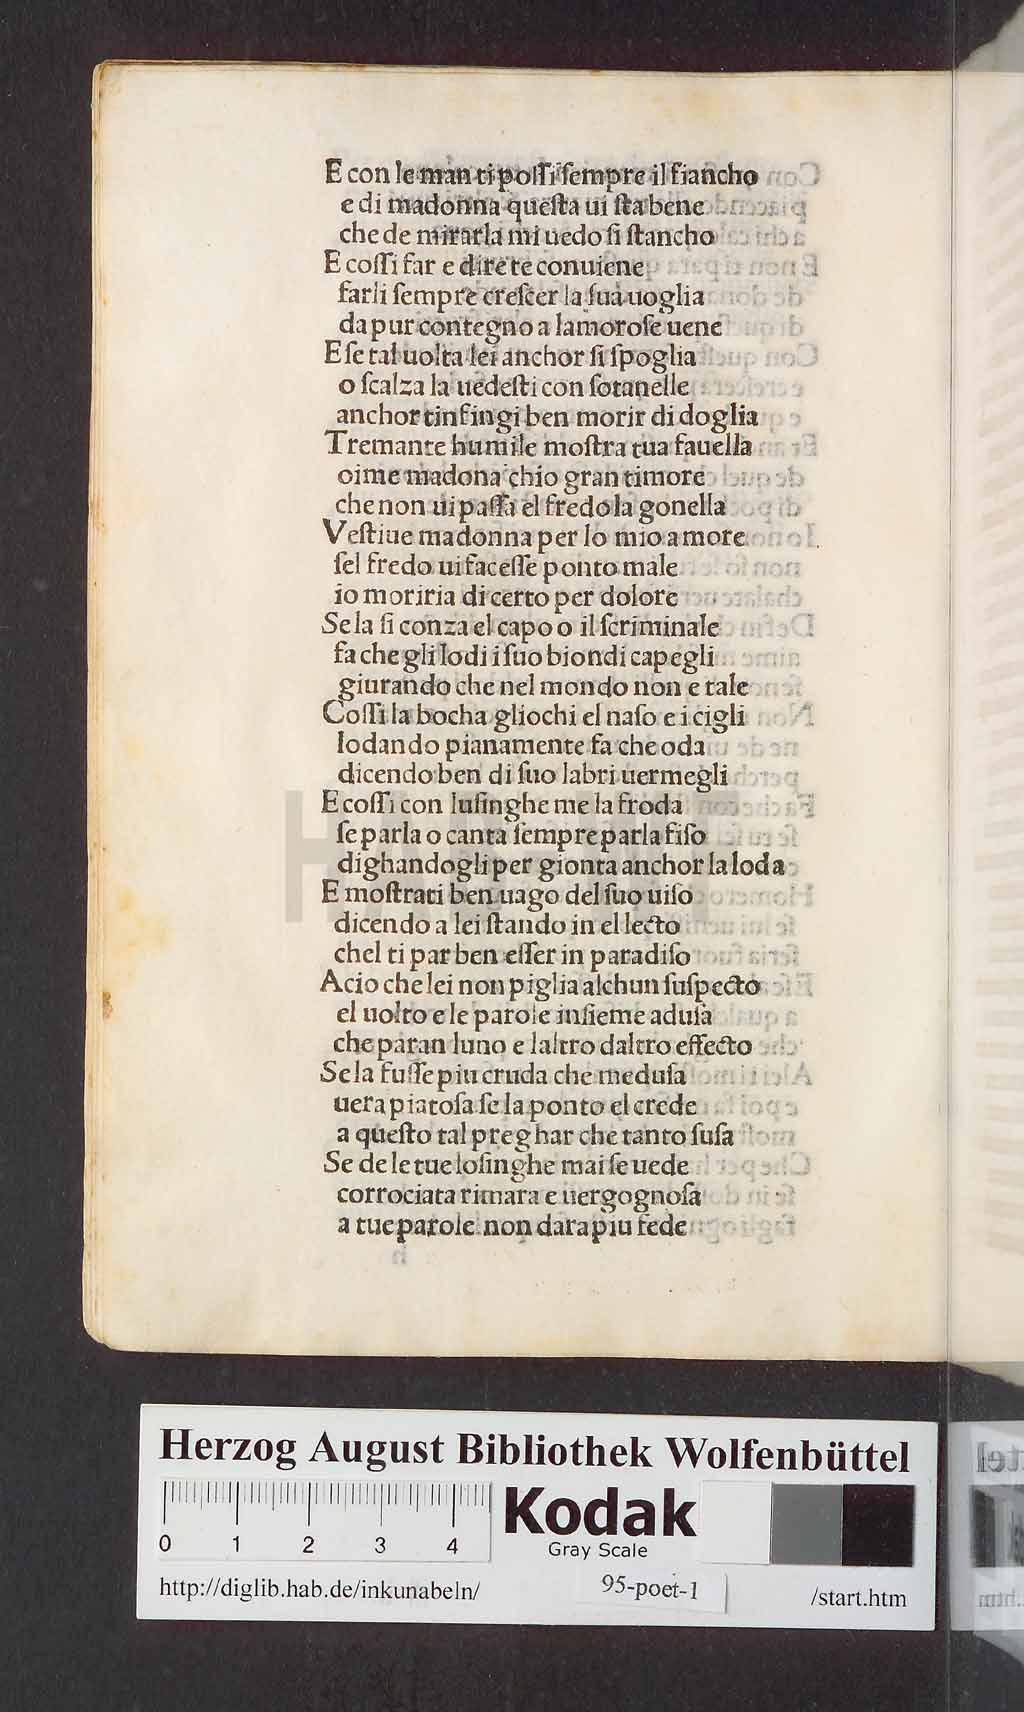 E con le man ti poſſi ſempre il fiancho
e di madonna queſta ui ſta bene
che de mirarla mi uedo ſi ſtancho
E coſſi far e dire te conuiene
farli ſempre creſcer la ſua uoglia
da pur contegno a lamoroſe uene
E ſe tal uolta lei anchor ſi ſpoglia
o ſcalza la uedeſti con ſotanelle
anchor tinfingi ben morir di doglia
Tremante humile moſtra tua fauella
oime madona chio gran timore
che non ui paſſa el fredo la gonella
Veſtiue madonna per lo mio amore
ſel fredo ui faceſſe ponto male
io moriria di certo per dolore
Se la ſi conza el capo o il ſcriminale
fa che gli lodi i ſuo biondi capegli
giurando che nel mondo non e tale
Coſſi la bocha gliochi el naſo e i cigli
lodando pianamente fa che oda
dicendo ben di ſuo labri uermegli
E coſſi con luſinghe me la froda
ſe parla o canta ſempre parla fiſo
dighandogli per gionta anchor la loda
E moſtrati ben uago del ſuo uiſo
dicendo a lei ſtando in el lecto
chel ti par ben eſſer in paradiſo
Acio che lei non piglia alchun ſuſpecto
el uolto e le parole inſieme aduſa
che paran luno e laltro daltro effecto
Se la fuſſe piu cruda che meduſa
uera piatoſa ſe la ponto el crede
a queſto tal preghar che tanto ſuſa
Se de le tue loſinghe mai ſe uede
corrociata rimara e uergognoſa
a tue parole non dara piu fede
HAB-INT
Herzog August Bibliothek Wolfenbüttel
0 1 2 3 4
Kodak
Gray Scale
http://diglib.hab.de/inkunabeln/ 95-poet-1 /start.htm